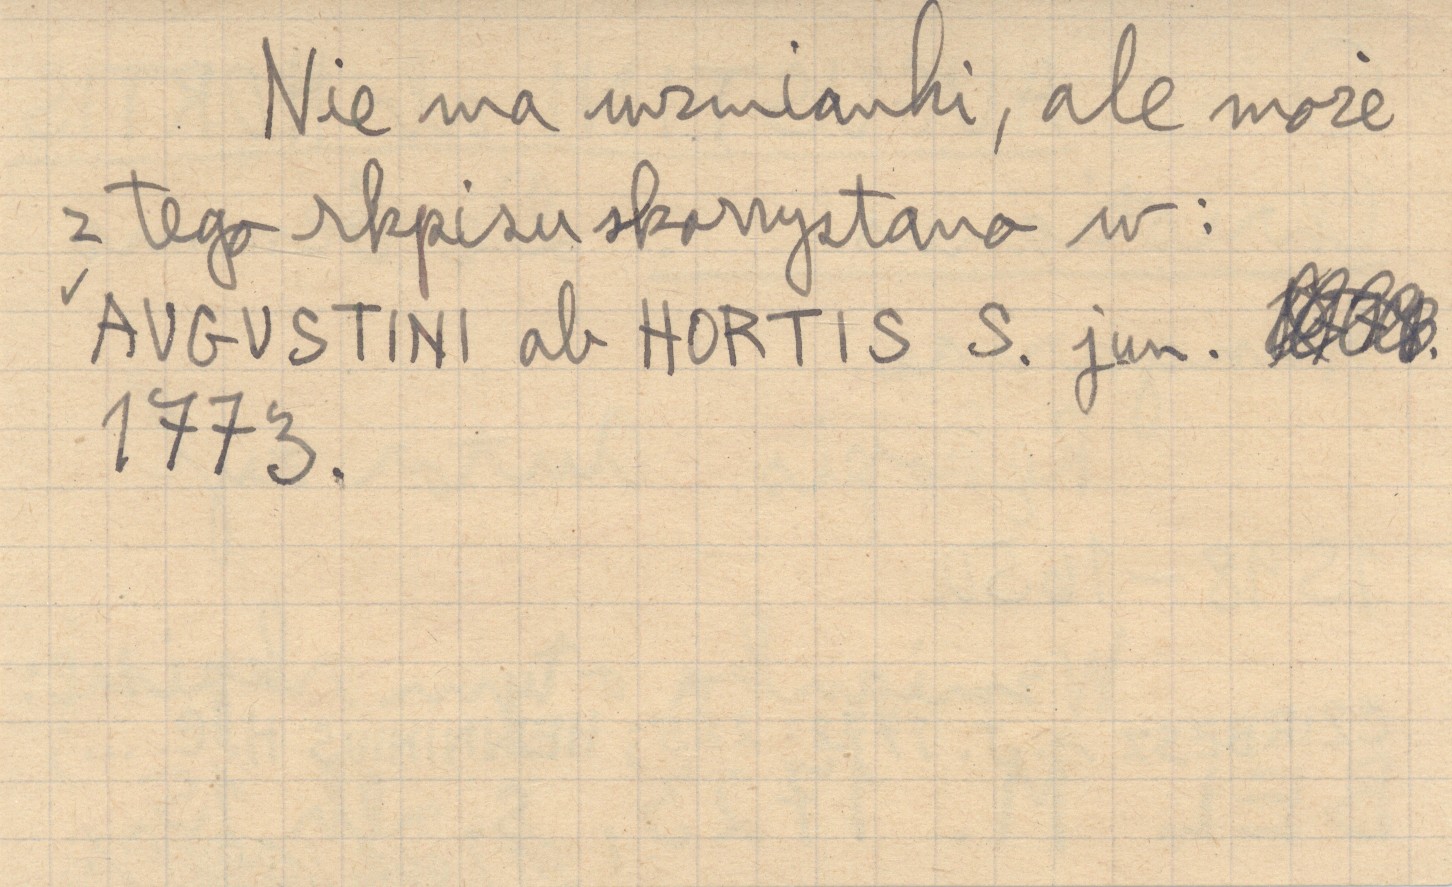 Nie ma wzmianki, ale może
z tego rkpisu skorzystano w:
✓ AUGUSTINI ab HORTIS S. jun.
1773.